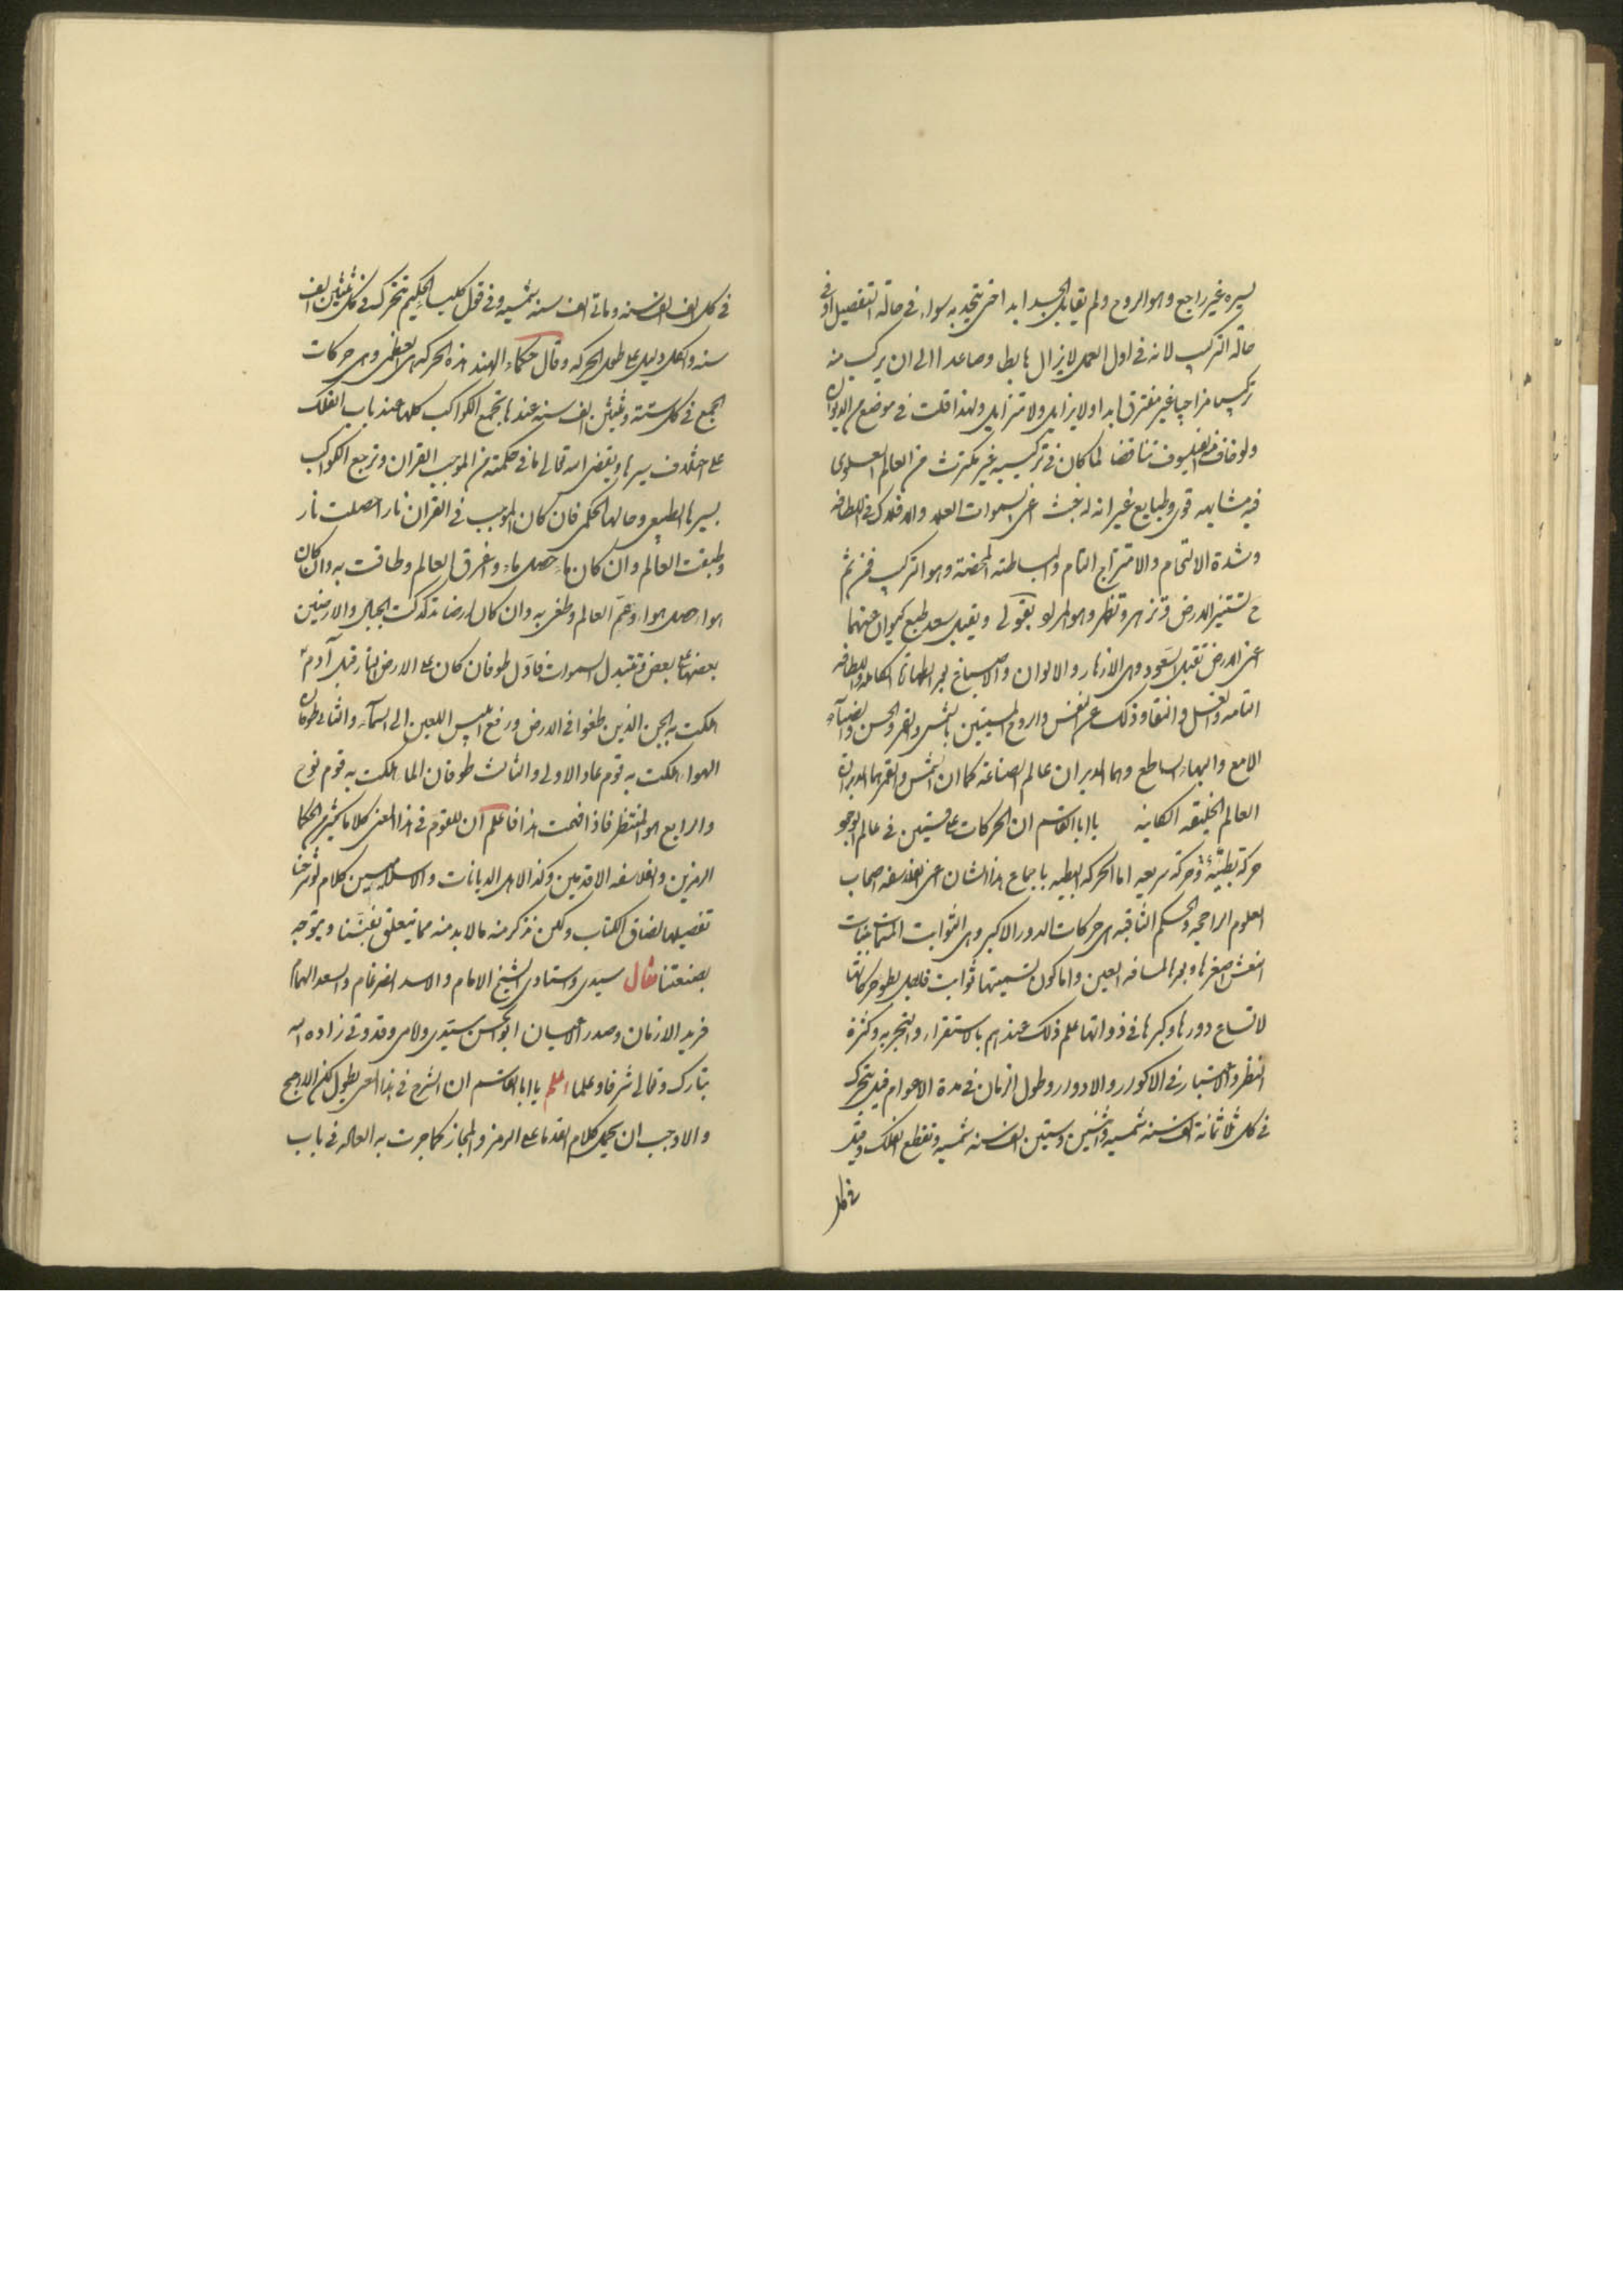 يسيره غير راجع وهو الروح ولم يقابل الجسد ابدا حتى يتحد به سواء في حالة التفصيل او في
حالة التركيب لانه في اول العمل لا يزال هابطا وصاعدا الى ان يركب منه
تركيبا مزاجيا غير مفترق ابدا ولا يزايل ولا متزايل ولهذا قلت في موضع من الديوان
ولو خاف الفيلسوف تناقضا لما كان في تركيبه غير مكترث من العالم العلوي
فيه مشابهه قوى وطبايع غير انه لم يخبث اعني السموات العلا والافلاك في اللطافه
وشدة الالتحام والامتزاج التام والبساطة المحضة وهو التركيب فمن ثم
ح تستنير الارض وتزهر وتظهر وهو المراد بقولى ويقبل سعد طبع كيوان عنهما
اعنى الارض تقبل السعود وهى الازهار والالوان والاصباغ بعد الطهارة الكامله واللطافه
التامه والغسل والنقا وذلك عن النفس والروح المسميتين بالشمس والقمر والحسن والضيآء
الامع والبهاء الساطع وهما المدبران عالم الصناعة كما ان الشمس والقمر هما المدبران
العالم الخليقه الكاينه يا ابا القاسم ان الحركات على قسمين في عالم الوجود
حركة بطيئة وحركة سريعه اما الحركه البطيه باجماع هذا الشان اعنى الفلاسفه اصحاب
العلوم الراجحه والحكم الثاقبه هى حركات الدور الاكبر وهى الثوابت المتناهيات
النعش اصغرها وبعدها لمسافه العين واما كون تسميتها ثوابت فلاجل بطو حركاتها
لاتساع دورها وكبرها في ذواتها علم ذلك عندهم بالاستقراء والتجربه وكثرة
النظر والاعتبار في الاكوار والادوار وطول الزمان في مدة الاعوام قيل يتحرك
في كل ثلاثمائة الف سنه شمسيه واثنين وستين الف سنه شمسيه وتقطع الفلك وقيل
في كل
في كل الف الف سنه وماتى الف سنه شمسيه وفي قول كليب الحكيم تتحرك في كل ثلثين الف
سنه والكل دليل على طول الحركه وقال حكماء الهند هذه الحركه هى العظمى وهى حركات
الجمع في كل ستة وثلثين الف سنه عندها تجتمع الكواكب كلها عند باب الفلك
على اختلاف سيرها ويقضى الله تعالى ما في حكمته من الموجب القران وترجع الكواكب
بسيرها الطبيعى وحالها الحكمى فان كان الموجب في القران نار احصلت نار
وطبقت العالم وان كان ماء حصل ماء واغرق العالم وطافت به وان كان
هواء حصل هواء وعم العالم وطغى به وان كان ارضا تدكدكت الجبال والارضين
بعضها على بعض وتتبدل السموات فاول طوفان كان على الارض النار قبل آدم
اهلكت به الجن الذين طغوا في الارض ورفع ابليس اللعين الى السمآء والثانى طوفان
الهواء اهلكت به قوم عاد الاولى والثالث طوفان الماء اهلكت به قوم نوح
والرابع هو المنتظر فاذا فهمت هذا فاعلم ان للقوم في هذا المعنى كلاما كثيرا من الحكما
الرمزين والفلاسفه الاقدمين وكذا لاهل الديانات والاسلاميين كلام لو شرحنا
تفصيلها لضاق الكتاب ولكن نذكر منه ما لا بد منه مما يتعلق بفننا ويتوجه
بصنعتنا فقال سيدى واستادى الشيخ الامام والاسد الضرغام والسعد الهمام
فريد الازمان وصدر الاعيان ابو الحسن سيدى ومولاى وقدوتى زاده الله
تبارك وتعالى شرفا وعلما اعلم يا ابا القاسم ان الشرح في هذا المعنى يطول لكن الارجح
والاوجب ان يحمل كلام القدما على الرمز والمجاز كما جرت به العاده في باب